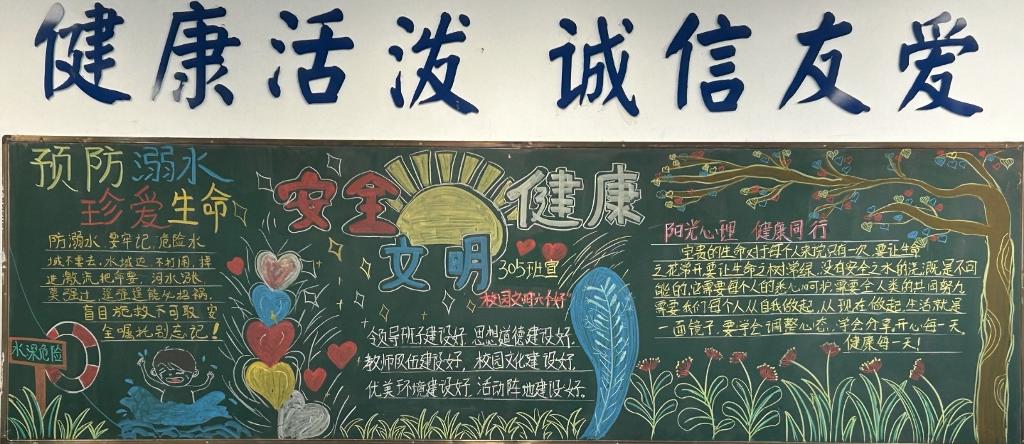 健康活泼 诚信友爱
预防溺水
珍爱生命
防溺水,要牢记,危险水
域不要去,水域边,不打闹,掉
进激流把命要,河水涨
莫强过,冒险逞能
盲目施救不可取,安
全嘱托别忘记!
水深危险
安全
健康
文明
305班宣
"校园文明六个好"
领导班子建设好,思想道德建设好,
教师队伍建设好,校园文化建设好,
优美环境建设好,活动阵地建设好。
阳光心理 健康同行
宝贵的生命对于每个人来说只有一次,要让生命
之花常开,要让生命之树常绿,没有安全之水的浇灌是不可
能的,它需要每个人的悉心呵护,需要全人类的共同努力
需要我们每个人从自我做起,从现在做起,生活就是
一面镜子,要学会调整心态,学会分享开心每一天,
健康每一天!